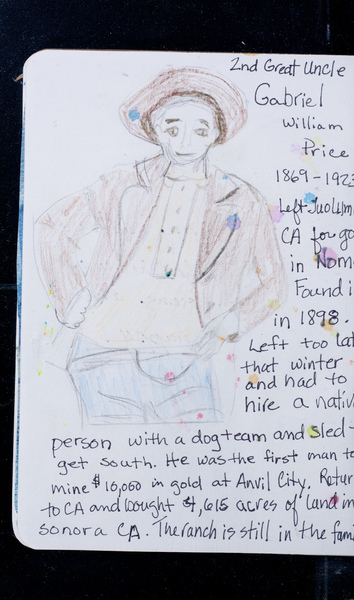 2nd Great Uncle
Gabriel
William
Price
1869-1923
Left Tuolum
CA for go
in Nom
Found i
in 1898.
Left too lat
that winter
and had to
hire a nativ
person with a dogteam and sled t
get south. He was the first man to
mine $10,000 in gold at Anvil City. Retur
to CA and bought 4,615 acres of land in
sonora CA. The ranch is still in the fami